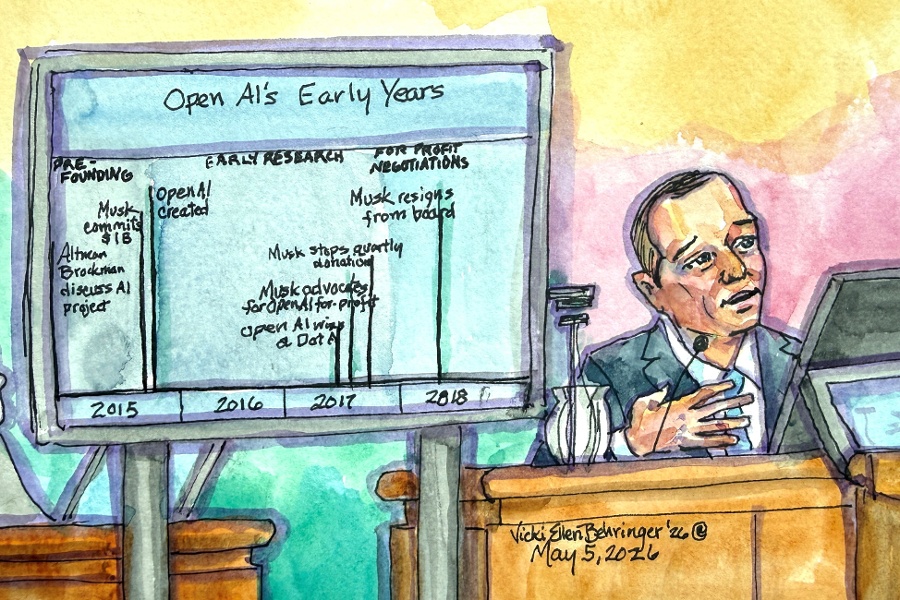 Open AI's Early Years
PRE-
FOUNDING
EARLY RESEARCH
FOR PROFIT
NEGOTIATIONS
OpenAI
created
Musk
commits
$1B
Altman
Brockman
discuss AI
project
Musk resigns
from board
Musk stops quartly
donation
Musk advocates
for OpenAI for-profit
Open AI wins
a DotA
2015
2016
2017
2018
Vicki Ellen Behringer '26 @
May 5, 2026